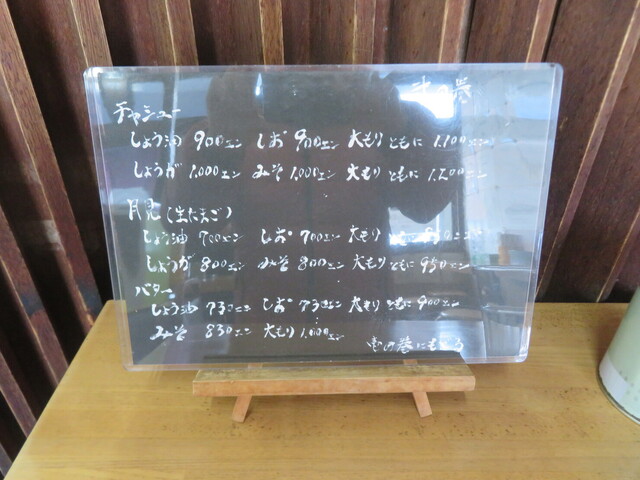 弐の巻
チャシュー
しょう油 900エン しお 900エン 大もり ともに 1,100エン
しょうが 1,000エン みそ 1,000エン 大もり ともに 1,200エン
月見(生たまご)
しょう油 700エン しお 700エン 大もり ともに 850エン
しょうが 800エン みそ 800エン 大もり ともに 950エン
バター
しょう油 730エン しお 730エン 大もり ともに 900エン
みそ 830エン 大もり 1,000エン
壱の巻にもどる